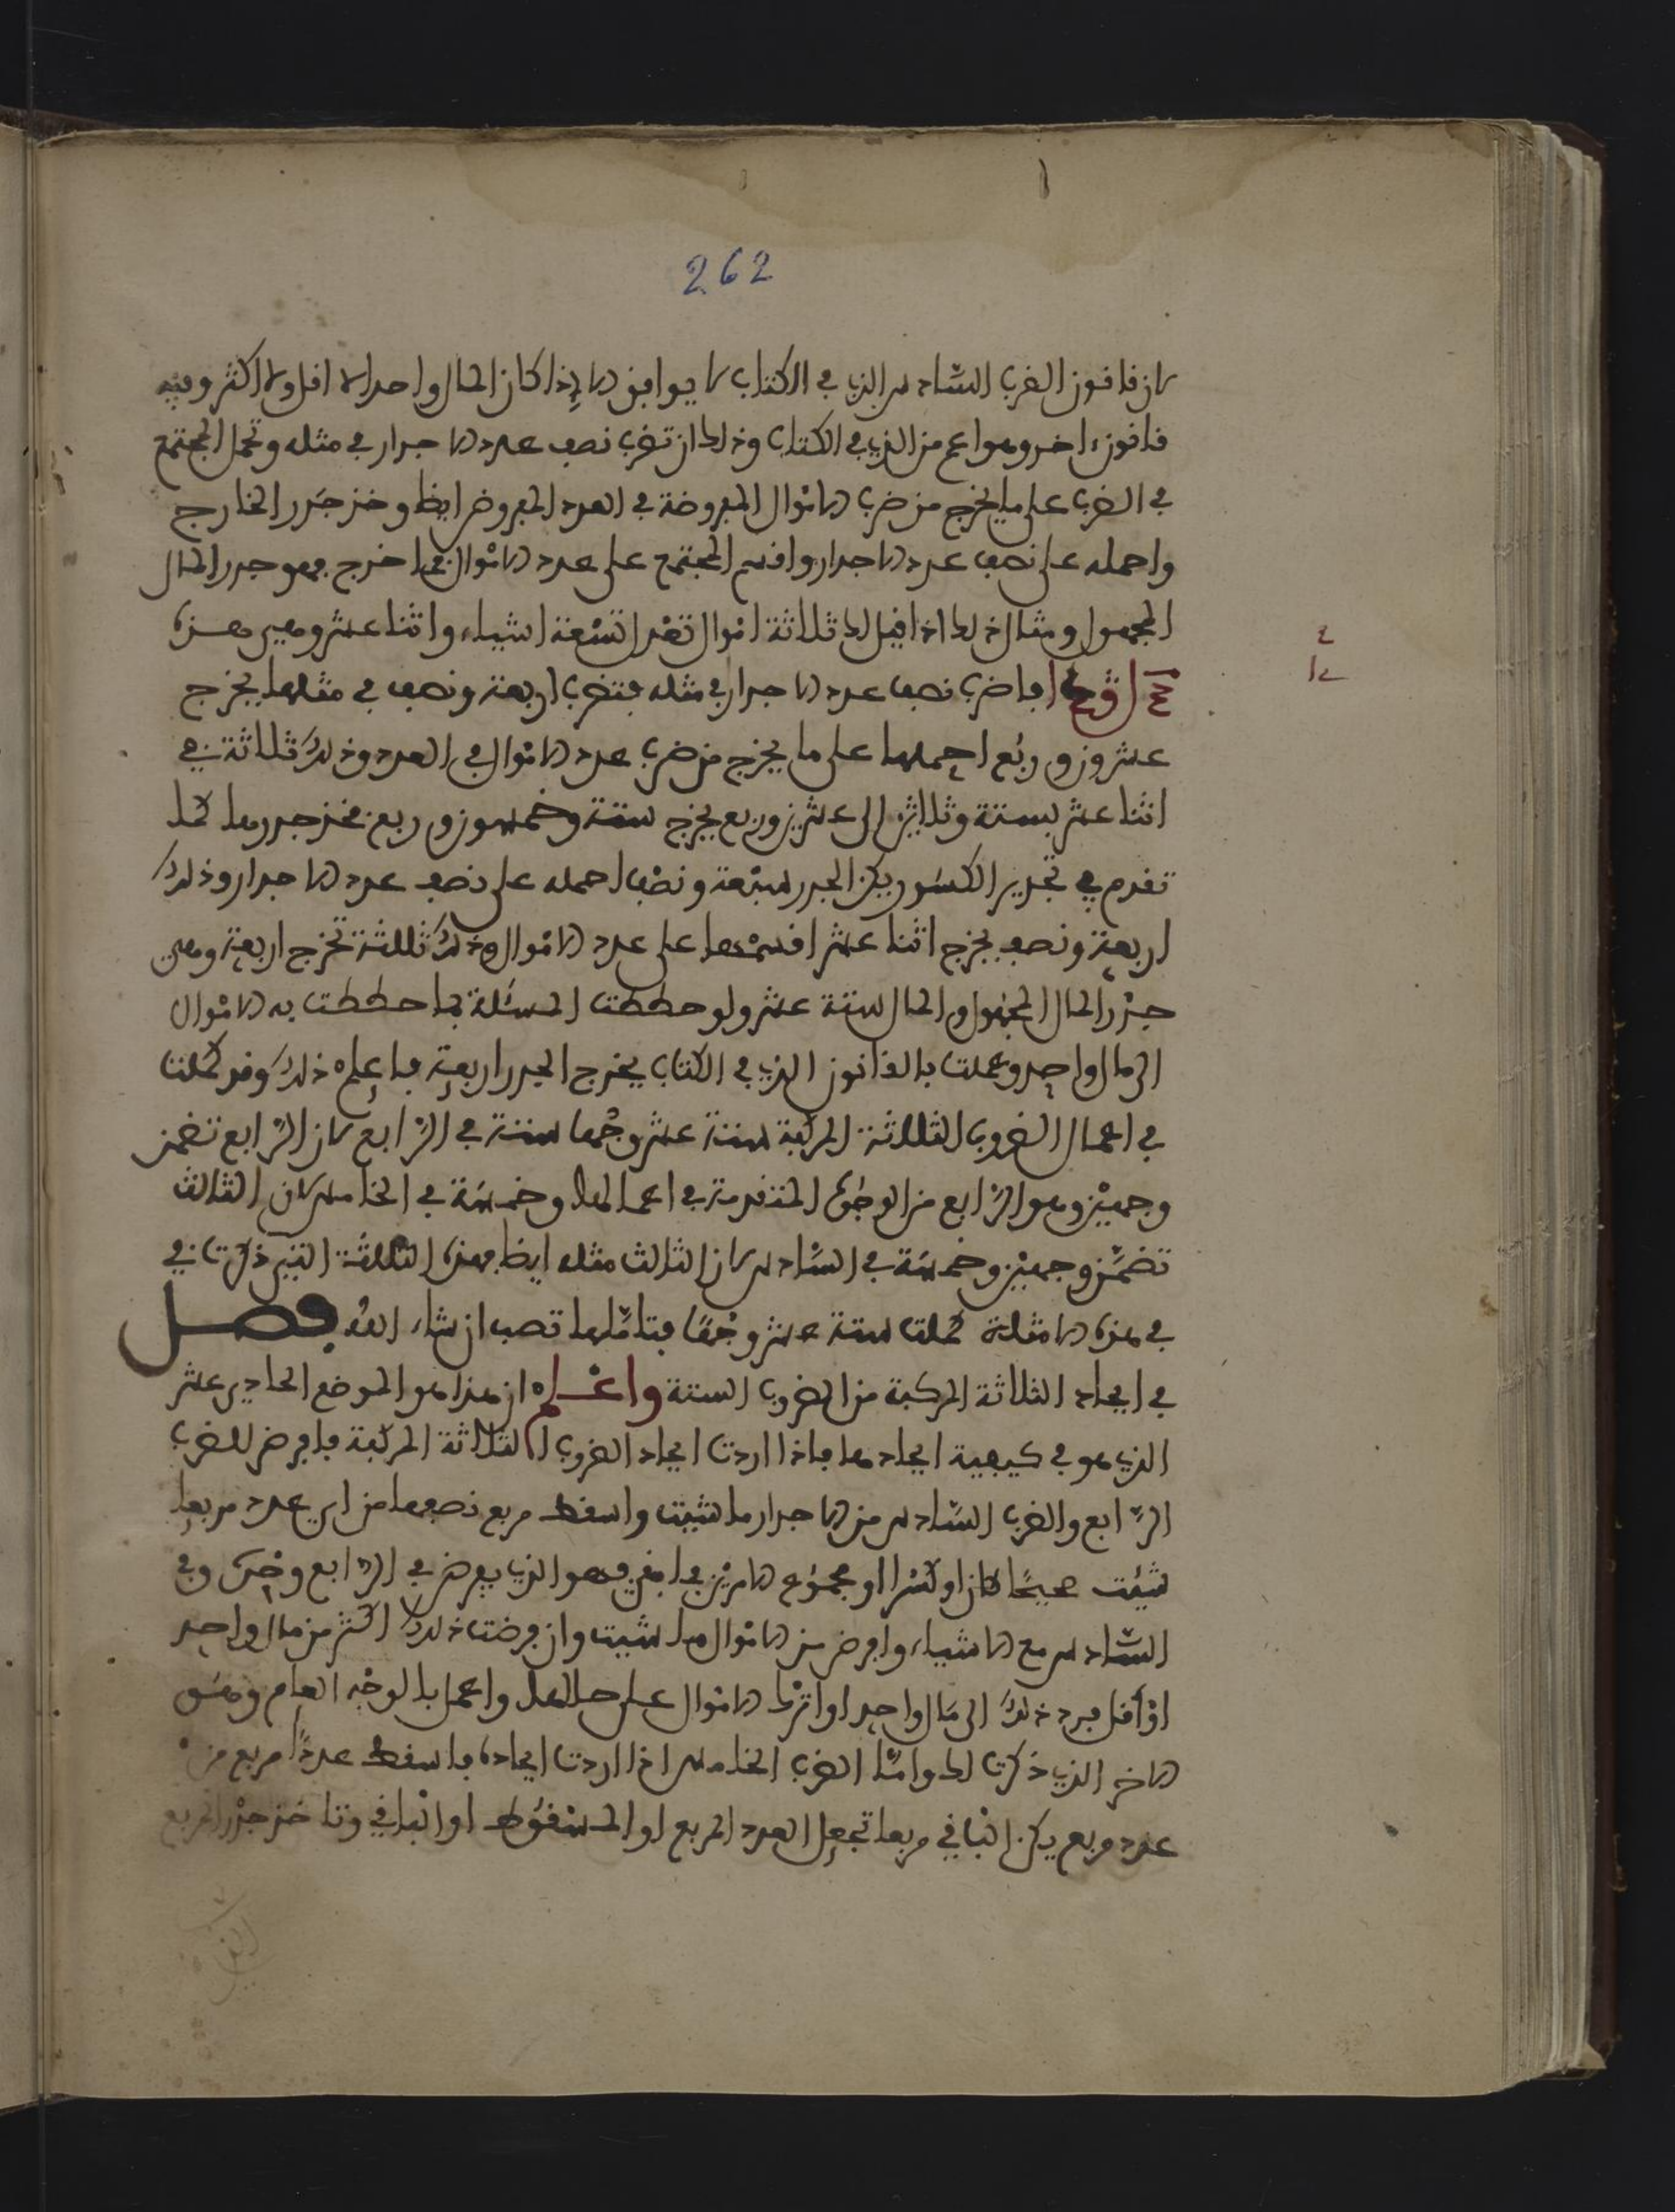 262
لان قانون الضرب السادس الذي في الكتاب لا يوافق الا إذا كان المال واحدا لا اقل ولا اكثر وفيه
قانون ءاخر وهو اعم من الذي في الكتاب وذلك ان تضرب نصف عدد الاجدار في مثله وتحمل المجتمع
في الضرب على ما يخرج من ضرب الاموال المفروضة في العدد المفروض ايضا وخذ جذر الخارج
واحمله على نصف عدد الاجدار واقسم المجتمع على عدد الاموال فما خرج فهو جدر المال
المجهول ومثال ذلك اذا قيل لك ثلاثة اموال تعدل تسعة اشياء واثنا عشر وهي هذه
فاضرب نصف عدد الاجدار في مثله فتضرب اربعة ونصف في مثلها يخرج
عشرون وربع احملها على ما يخرج من ضرب عدد الاموال في العدد وذلك ثلاثة في
اثنا عشر بستة وثلاثين الى عشرين وربع يخرج ستة وخمسون وربع فخذ جدرها كما
تقدم في تجدير الكسور يكن الجدر سبعة ونصف احمله على نصف عدد الاجدار وذلك
اربعة ونصف يخرج اثنا عشر اقسمها على عدد الاموال وذلك ثلثة تخرج اربعة وهي
جذر المال المجهول والمال ستة عشر ولو حططت المسئلة بما حططت به الاموال
الى مال واحد وعملت بالقانون الذي في الكتاب يخرج الجدر اربعة فاعلم ذلك وقد كملت
في اعمال الضروب الثلاثة المركبة ستة عشر وجها ستة في الرابع لان الرابع تضمن
وجهين وهو الرابع من الوجوه المتقدمة في اعمالها وخمسة في الخامس لان الثالث
تضمن وجهين وخمسة في السادس لان الثالث مثله ايضا فهذه الثلثة التي ذكرت في
في هذه الامثلة كملت ستة عشر وجها فتاملها تصب ان شاء الله فصل
في ايجاد الثلاثة المركبة من الضروب الستة واعلم ان هذا هو الموضع الحادي عشر
الذي هو في كيفية ايجادها فاذا اردت ايجاد الضروب الثلاثة المركبة فافرض للضرب
الرابع والضرب السادس من الاجدار ما شيت واسقط مربع نصفها من اي عدد مربعا
شيت صحيحا كان او كسرا او مجموع الامرين فما بقي فهو الذي يفرض في الرابع وفي
السادس مع الاشياء وافرض من الاموال ما شيت وان فرضت ذلك اكثر من مال واحد
او اقل فرد ذلك الى مال واحد او اترك الاموال على حالها واعمل بالوجه العام وهو
الاخر الذي ذكرت لك واما الضرب الخامس اذا اردت ايجاده فاسقط عددا مربع من
عدد مربع يكن الباقي مربعا تجعل العدد المربع او المسقوط او الباقي وتاخذ جذر المربع